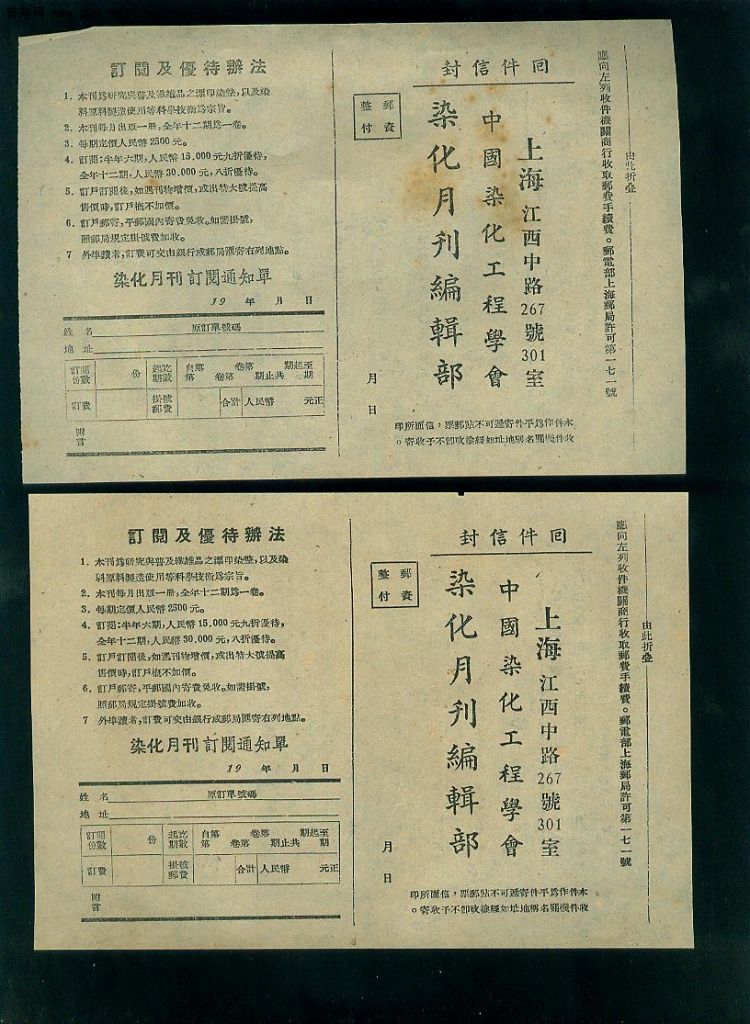 訂閱及優待辦法
1. 本刊爲研究與普及纖維品之漂印染整,以及染
料原料製造使用等科學技術爲宗旨。
2. 本刊每月出版一册,全年十二期爲一卷。
3. 每期定價人民幣2500元。
4. 訂閱:半年六期,人民幣15,000元九折優待,
全年十二期,人民幣30,000元,八折優待。
5. 訂戶訂閱後,如遇刊物增價,或出特大號提高
售價時,訂戶槪不加價。
6. 訂戶郵寄,平郵國內寄費免收。如需掛號,
照郵局規定掛號費加收。
7 外埠讀者,訂費可交由銀行或郵局匯寄右列地點。
染化月刊訂閱通知單
19 年 月 日
姓名 原訂單號碼
地址
訂閱份數 份 起訖期數 自第 卷第 期起至
第 卷第 期止共 期
訂費 掛號郵費 合計 人民幣 元正
附言
封信件回
郵資整付
上海江西中路267號301室
中國染化工程學會
染化月刊編輯部
月 日
印所面信,票郵貼不可遞寄件平爲作件本
。寄收予不卽改塗經如址地稱名關機件收
由此折疊
應向左列收件機關商行收取郵費手續費。郵電部上海郵局許可第一七一號
訂閱及優待辦法
1. 本刊爲研究與普及纖維品之漂印染整,以及染
料原料製造使用等科學技術爲宗旨。
2. 本刊每月出版一册,全年十二期爲一卷。
3. 每期定價人民幣2500元。
4. 訂閱:半年六期,人民幣15,000元九折優待,
全年十二期,人民幣30,000元,八折優待。
5. 訂戶訂閱後,如遇刊物增價,或出特大號提高
售價時,訂戶槪不加價。
6. 訂戶郵寄,平郵國內寄費免收。如需掛號,
照郵局規定掛號費加收。
7 外埠讀者,訂費可交由銀行或郵局匯寄右列地點。
染化月刊訂閱通知單
19 年 月 日
姓名 原訂單號碼
地址
訂閱份數 份 起訖期數 自第 卷第 期起至
第 卷第 期止共 期
訂費 掛號郵費 合計 人民幣 元正
附言
封信件回
郵資整付
上海江西中路267號301室
中國染化工程學會
染化月刊編輯部
月 日
印所面信,票郵貼不可遞寄件平爲作件本
。寄收予不卽改塗經如址地稱名關機件收
由此折疊
應向左列收件機關商行收取郵費手續費。郵電部上海郵局許可第一七一號